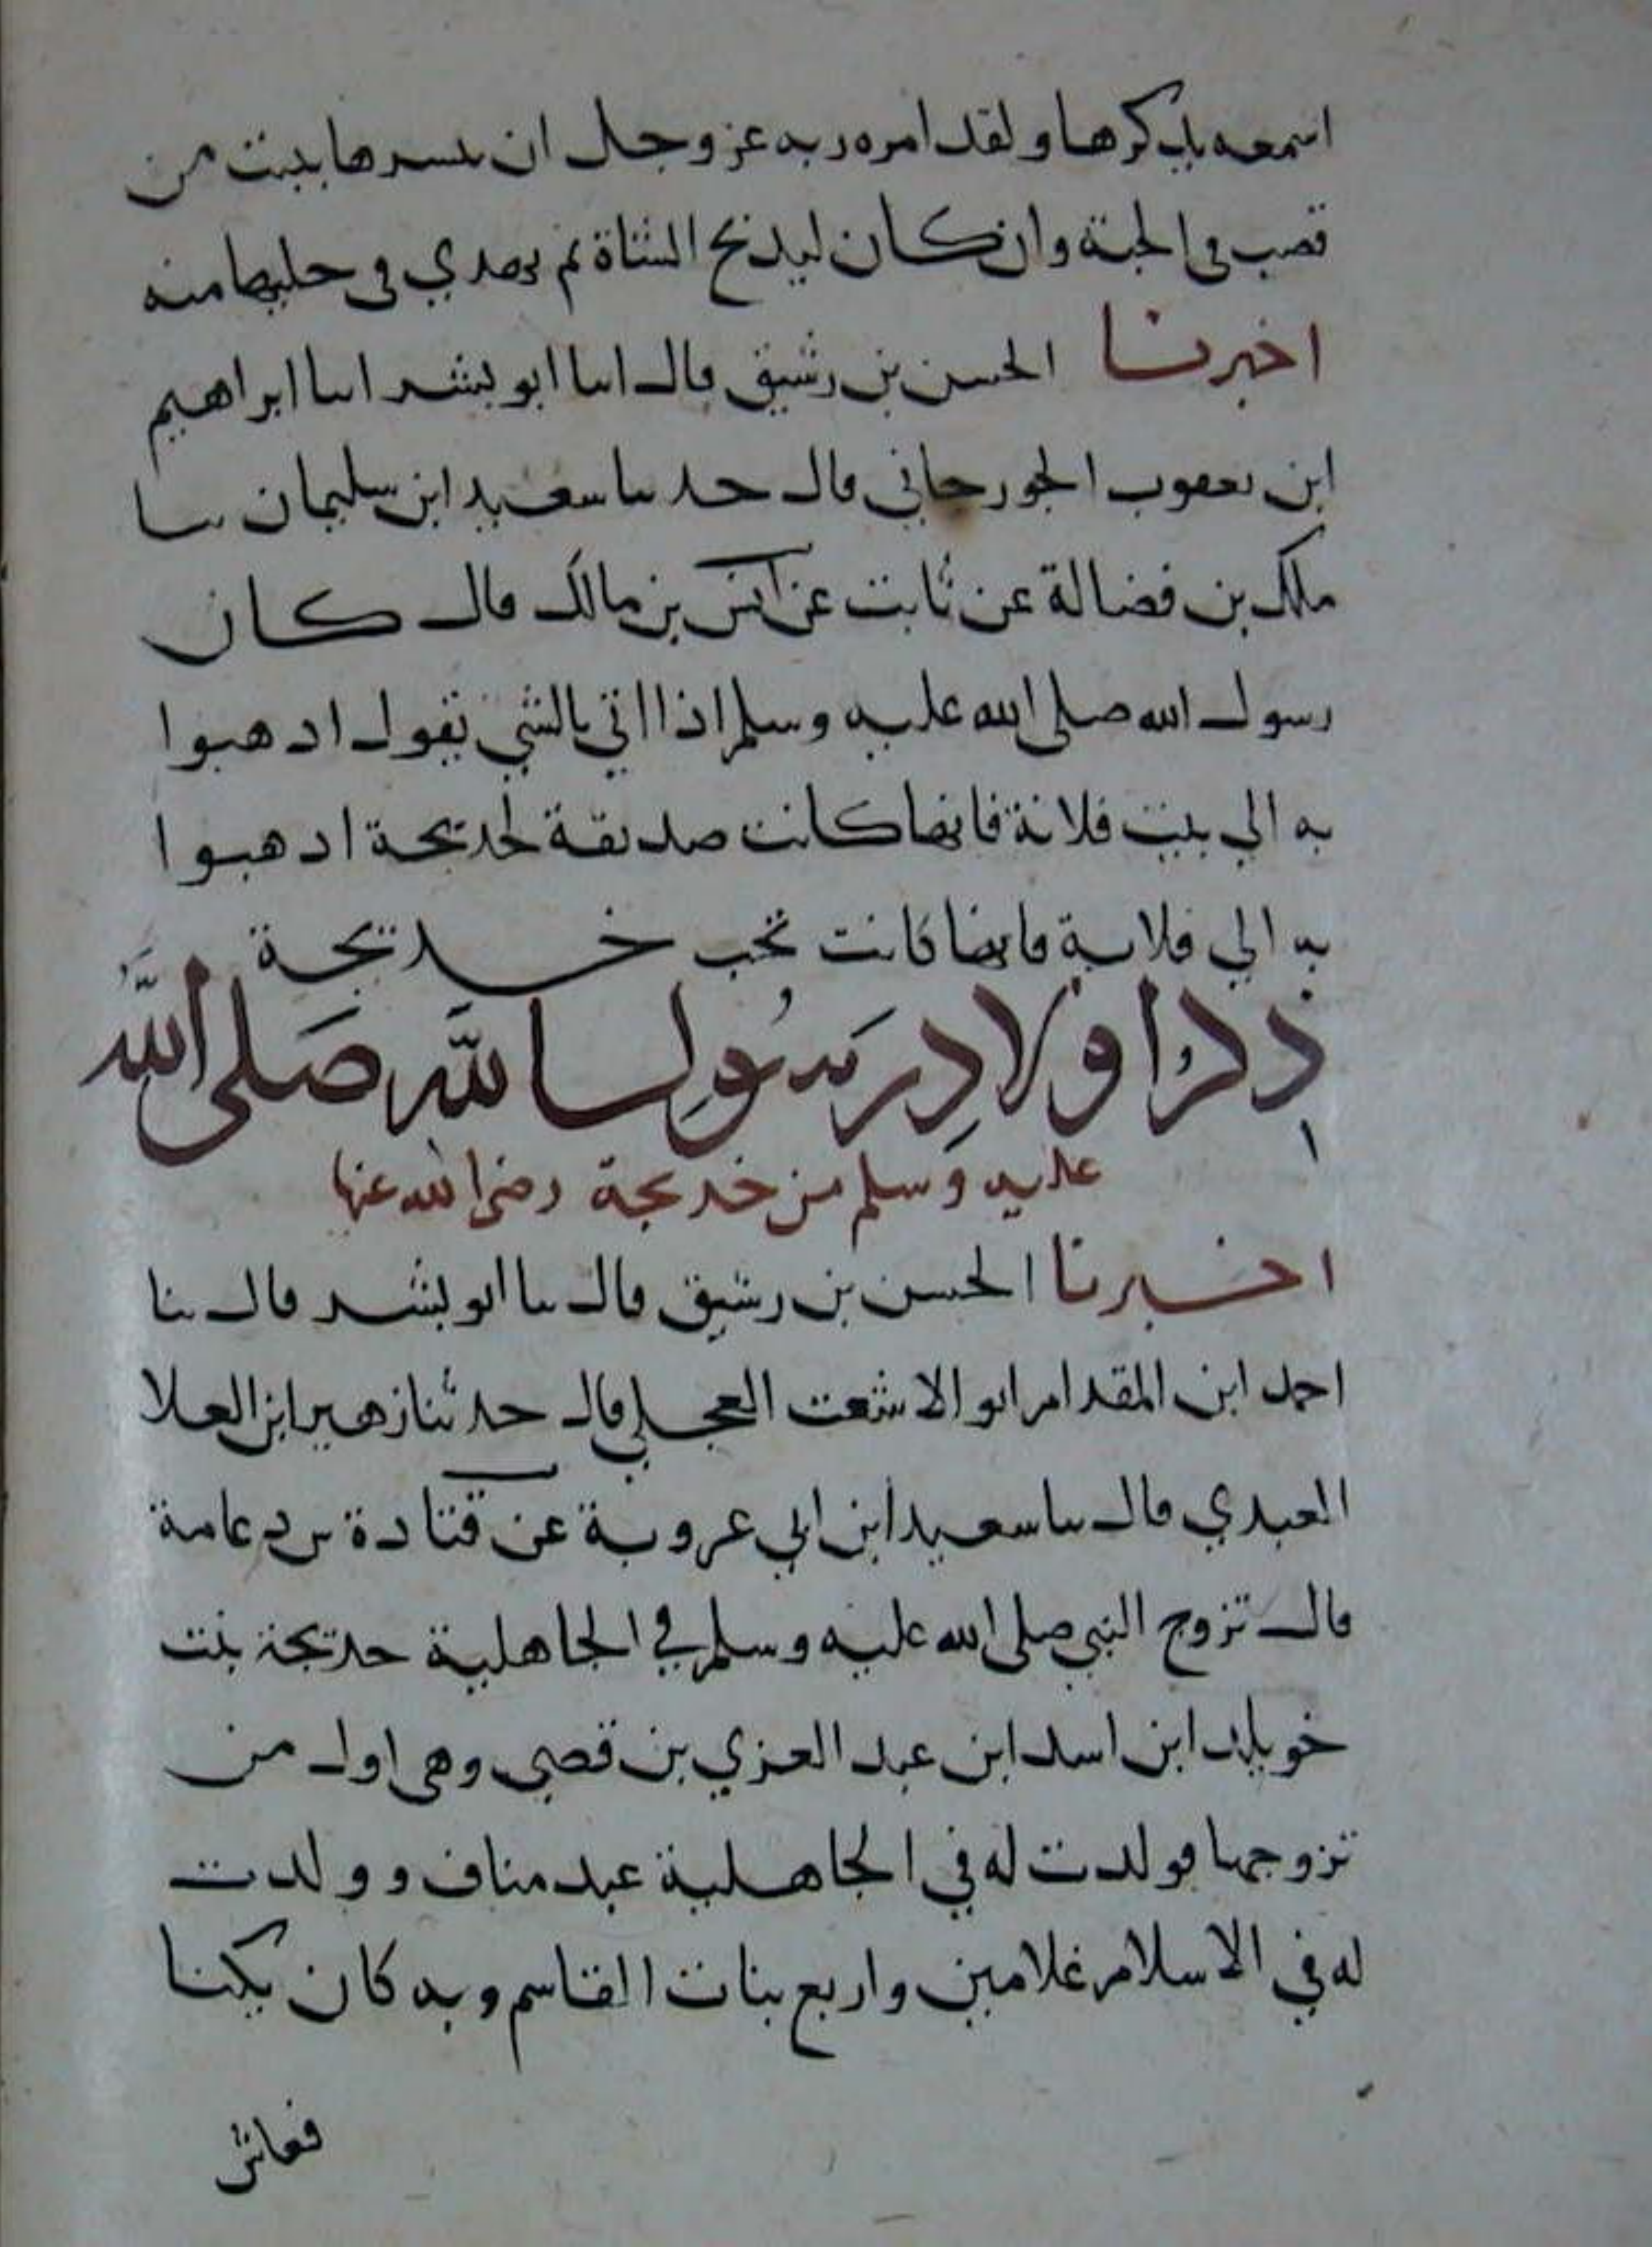 اسمعه يذكرها ولقد امره ربه عز وجل ان يبشرها ببيت من
قصب في الجنة وان كان ليذبح الشاة ثم يهدي في خليلتها منه
اخبرنا الحسن بن رشيق قال انبا ابو بشر انبا ابراهيم
ابن يعقوب الجورجاني قال حدثنا سعيد ابن سليمان ثنا
ملك بن فضالة عن ثابت عن انس بن مالك قال كان
رسول الله صلى الله عليه وسلم اذا اتي بالشي يقول اذهبوا
به الي بيت فلانة فانها كانت صديقة لخديجة اذهبوا
به الي فلانة فانها كانت تحب خديجة
ذكر اولاد رسول الله صلى الله
عليه وسلم من خديجة رضي الله عنها
اخبرنا الحسن بن رشيق قال ثنا ابو بشر قال ثنا
احمد ابن المقدام ابو الاشعت العجلي قال حدثنا زهير ابن العلا
العبدي قال ثنا سعيد ابن ابي عروبة عن قتادة بن دعامة
قال تزوج النبي صلى الله عليه وسلم في الجاهلية خديجة بنت
خويلد ابن اسد ابن عبد العزي بن قصي وهي اول من
تزوجها فولدت له في الجاهلية عبد مناف وولدت
له في الاسلام غلامين واربع بنات القاسم وبه كان يكنا
فعاش